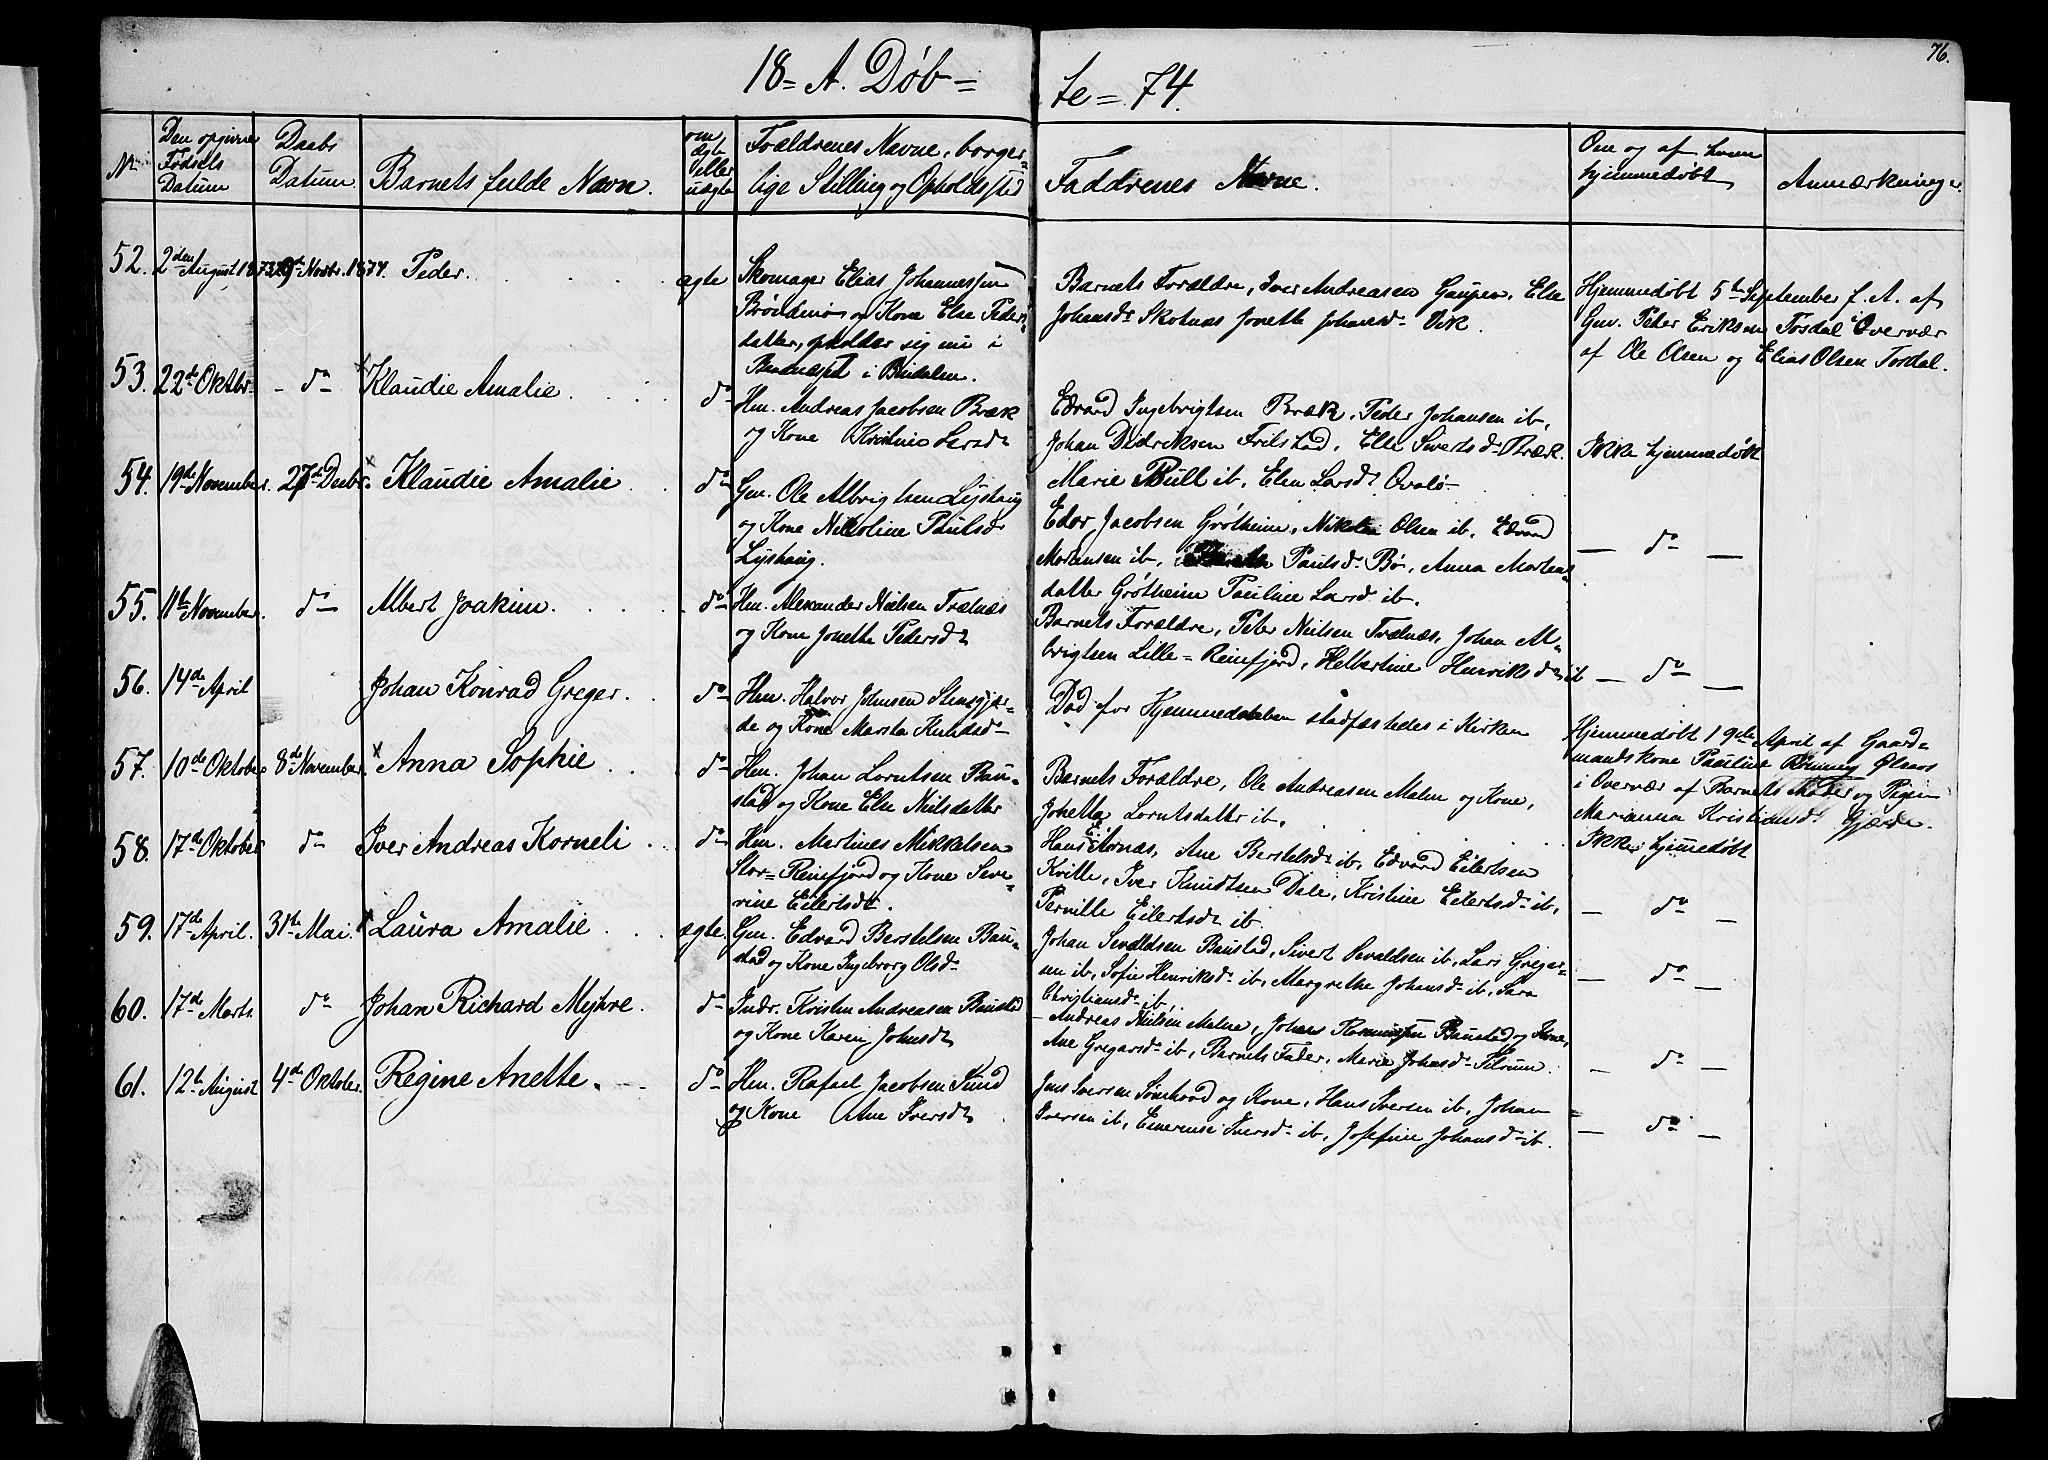 76.
18 = A. Døb = te = 74.
No
Den opgivne Fødsels Datum
Daabs Datum.
Barnets fulde Navn.
om ægte eller uægte
Forældrenes Navne, borger=
lige Stilling og Opholdssted
Faddrenes Navne.
Om og af hvem hjemmedøbt
Anmærkninger.
52. 2den August 1873 Novbr. 1874. Peder. ægte
Skomager Elias Johannessen
og Kone Else Peders=
datter, opholder sig nu i
i Bindalen.
Barnets Forældre, Iver Andreasen Gaupen, Else
Johansdr Skotnes Jonetta Johansdr Vik.
Hjemmedøbt 5te September f. A. af
Gm. Peder Eriksen Tosdal i Overvær
af Ole Olsen og Elias Olsen Tosdal.
53. 22de Oktbr. do Klaudie Amalie. do
Hm. Andreas Jacobsen Bræk
og Kone Kristine Larsdr
Edvard Ingebrigtsen Bræk, Peder Johansen ib,
Johan Dedriksen Frilstad, Else Sivertsdr Bræk.
Marie Bull ib, Elen Larsdr
Ikke hjemmedøbt
54. 19de November. 27de Decbr. Klaudie Amalie do
Gm. Ole Albrigtsen Lysthaug
og Kone Nikoline Paulsdr
Lysthaug.
Edor Jacobsen Grøtheim, Nikolai Olsen ib. Edvard
Mortensen ib, Paulsdr Bø, Anna Mortens=
datter Grøtheim Pauline Larsdr ib.
— do —
55. 11te November. do Albert Joakim. do
Hm. Alexander Nielsen Trælnæs
og Kone Jonetta Petersdr
Barnets Forældre, Peter Nielsen Trælnæs, Johan Al=
brigtsen Lille=Reinfjord, Helbertine Henriksdr ib
— do —
56. 14de April Johan Konrad Greger. do
Hm. Halvor Johnsen Stensgjær=
de og Kone Marta Knudsdr
Død før Hjemmedaaben stadfæstedes i Kirken
Hjemmedøbt 19de April af Gaard=
mandskone Pauline
i Overvær af Barnets Moder og Pigen
Marianna Kristiansdr Gjærde.
57. 10de Oktober 8de November. Anna Sophie. do
Hm. Johan Lorntsen Bau=
stad og Kone Else Nielsdatter
Barnets Forældre, Ole Andreasen Malm og Kone,
Jonetta Lorntsdatter ib.
Ikke hjemmedøbt
58. 17de Oktober do Iver Andreas Korneli. do
Hm. Martines Mikkelsen
Stor=Reinfjord og Kone Seve=
rine Eilertsdr.
Hans Aarnæs, Ane Berstelsdr ib, Edvard Eilertsen
Kville, Iver Knudtsen Dale, Kristine Eilertsdr ib,
Pernille Eilertsdr ib.
— do —
59. 17de April. 31te Mai. Laura Amalie. ægte.
Gm. Edvard Berstelsen Bau=
stad og Kone Ingeborg Olsdr
Johan Sevaldsen Baustad, Sivert Sevaldsen ib, Lars Greger=
sen ib, Sofie Henriksdr ib, Margrethe Johansdr ib, Sara
Christiansdr ib,
— do —
60. 17de Marts do Johan Richard Myhre. do
Indr. Kristen Andreasen Baustad
og Kone Karen Johnsdr
Andreas Nielsen Malm, Johans Baustad og Kone,
Ane Gregersdr ib, Barnets Fader, Marie Johansdr
— do —
61. 12te August 4de Oktober. Regine Anette. do
Hm. Rafael Jacobsen Sund
og Kone Ane Iversdr
Jens Iversen og Kone, Hans Iversen ib, Johan
Iversen ib, Emerense Iversdr ib, Josefine Johansdr ib.
— do —